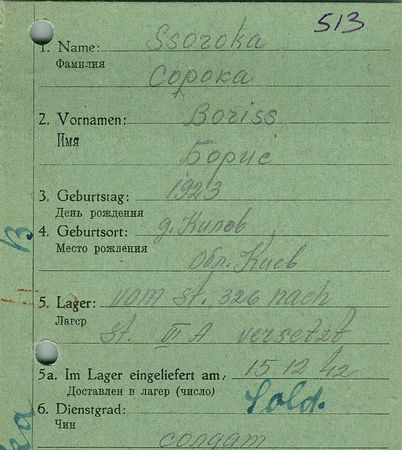 513
1. Name: Ssoroka
Фамилия Сорока
2. Vornamen: Boriss
Имя Борис
3. Geburtstag: 1923
День рождения
4. Geburtsort: д. Килов
Место рождения обл. Киев
5. Lager: vom St. 326 nach
Лагер St. VI A versetzt
5a. Im Lager eingeliefert am: 15 12 42
Доставлен в лагер (число)
6. Dienstgrad: Sold.
Чин солдат